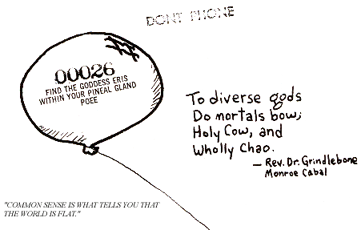 DONT PHONE
00026
FIND THE GODDESS ERIS
WITHIN YOUR PINEAL GLAND
POEE
To diverse gods
Do mortals bow;
Holy Cow, and
Wholly Chao.
— Rev. Dr. Grindlebone
Monroe Cabal
"COMMON SENSE IS WHAT TELLS YOU THAT
THE WORLD IS FLAT."